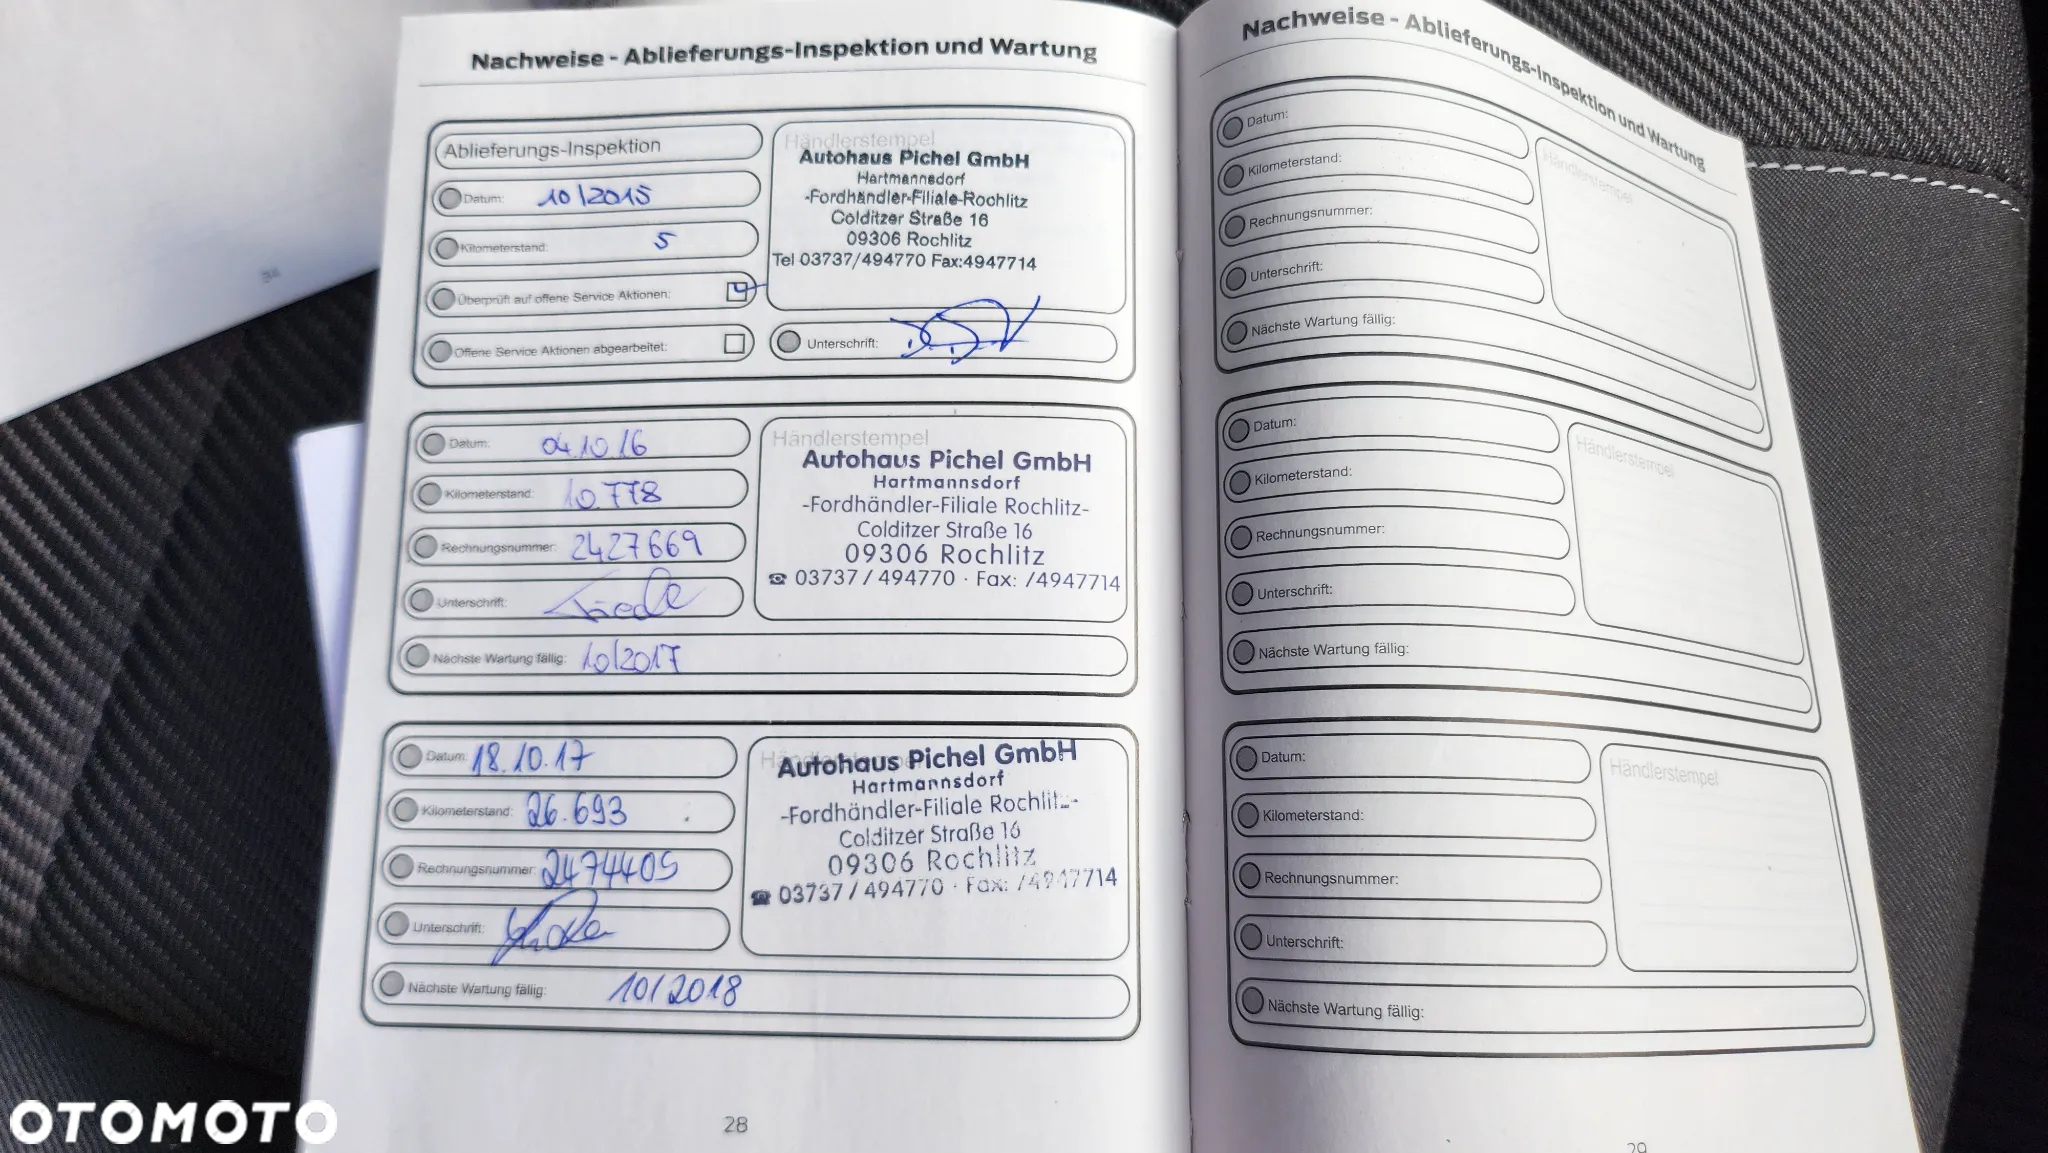 Nachweise - Ablieferungs-Inspektion und Wartung
Ablieferungs-Inspektion
Datum: 10/2015
Kilometerstand: 5
Überprüft auf offene Service Aktionen:
Offene Service Aktionen abgearbeitet:
Händlerstempel
Autohaus Pichel GmbH
Hartmannsdorf
-Fordhändler-Filiale-Rochlitz
Colditzer Straße 16
09306 Rochlitz
Tel 03737/494770 Fax:4947714
Unterschrift:
Datum: 04.10.16
Kilometerstand: 10.778
Rechnungsnummer: 2427669
Unterschrift:
Nächste Wartung fällig: 10/2017
Händlerstempel
Autohaus Pichel GmbH
Hartmannsdorf
-Fordhändler-Filiale Rochlitz-
Colditzer Straße 16
09306 Rochlitz
☎ 03737 / 494770 · Fax: /4947714
Datum: 18.10.17
Kilometerstand: 26.693
Rechnungsnummer: 2474405
Unterschrift:
Nächste Wartung fällig: 10/2018
Autohaus Pichel GmbH
Hartmannsdorf
-Fordhändler-Filiale Rochlitz-
Colditzer Straße 16
09306 Rochlitz
☎ 03737 / 494770 · Fax: /4947714
28
Nachweise - Ablieferungs-Inspektion und Wartung
Datum:
Kilometerstand:
Rechnungsnummer:
Unterschrift:
Nächste Wartung fällig:
Händlerstempel
Datum:
Kilometerstand:
Rechnungsnummer:
Unterschrift:
Nächste Wartung fällig:
Händlerstempel
Datum:
Kilometerstand:
Rechnungsnummer:
Unterschrift:
Nächste Wartung fällig:
Händlerstempel
29
34
OTOMOTO